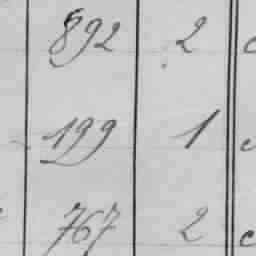 892 2
199 1
767 2